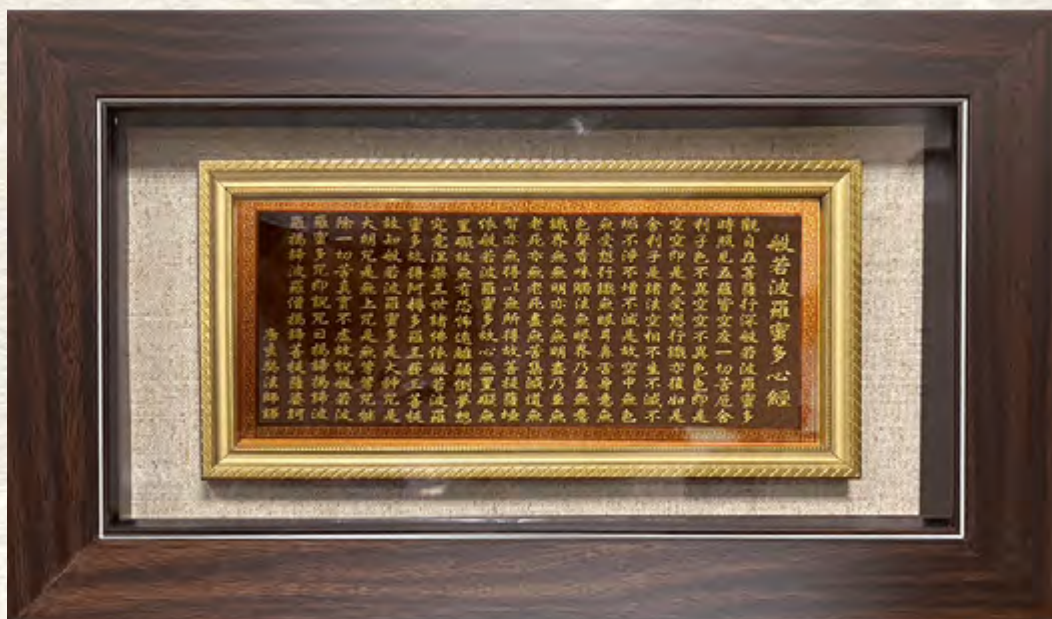 般若波羅蜜多心經
觀自在菩薩行深般若波羅蜜多
時照見五蘊皆空度一切苦厄舍
利子色不異空空不異色色即是
空空即是色受想行識亦復如是
舍利子是諸法空相不生不滅不
垢不淨不增不減是故空中無色
無受想行識無眼耳鼻舌身意無
色聲香味觸法無眼界乃至無意
識界無無明亦無無明盡乃至無
老死亦無老死盡無苦集滅道無
智亦無得以無所得故菩提薩埵
依般若波羅蜜多故心無罣礙無
罣礙故無有恐怖遠離顛倒夢想
究竟涅槃三世諸佛依般若波羅
蜜多故得阿耨多羅三藐三菩提
故知般若波羅蜜多是大神咒是
大明咒是無上咒是無等等咒能
除一切苦真實不虛故說般若波
羅蜜多咒即說咒曰揭諦揭諦波
羅揭諦波羅僧揭諦菩提薩婆訶
唐玄奘法師譯